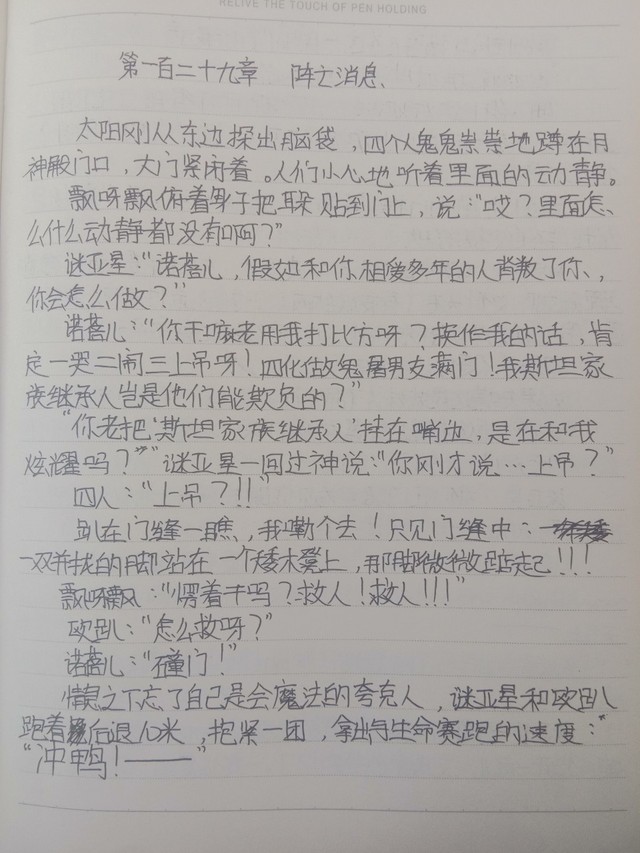 RELIVE THE TOUCH OF PEN HOLDING
第一百二十九章 阵亡消息、
太阳刚从东边探出脑袋，四个人鬼鬼祟祟地蹲在月
神殿门口，大门紧闭着。人们小心地听着里面的动静。
飘呀飘俯着身子把耳朵贴到门上，说：“哎？里面怎
么什么动静都没有啊？”
谜亚星：“诺蓓儿，假如和你相爱多年的人背叛了你、，
你会怎么做？”
诺蓓儿：“你干嘛老用我打比方呀？换作我的话，肯
定一哭二闹三上吊呀！四化做鬼屠男友满门！我斯坦家
族继承人岂是他们能欺负的？”
“你老把‘斯坦家族继承人’挂在嘴边，是在和我
炫耀吗？”谜亚星一回过神说：“你刚才说…上吊？”
四人：“上吊？！！”
趴在门缝一瞧，我嘞个去！只见门缝中：
一双并拢的脚站在一个矮木凳上，那脚微微踮起！！！
飘呀飘：“愣着干吗？救人！救人！！！”
欧趴：“怎么救呀？”
诺蓓儿：“碰门！”
情急之下忘了自己是会魔法的夸克人，谜亚星和欧趴
跑着后退10米，抱紧一团，拿出与生命赛跑的速度：“
“冲鸭！——”